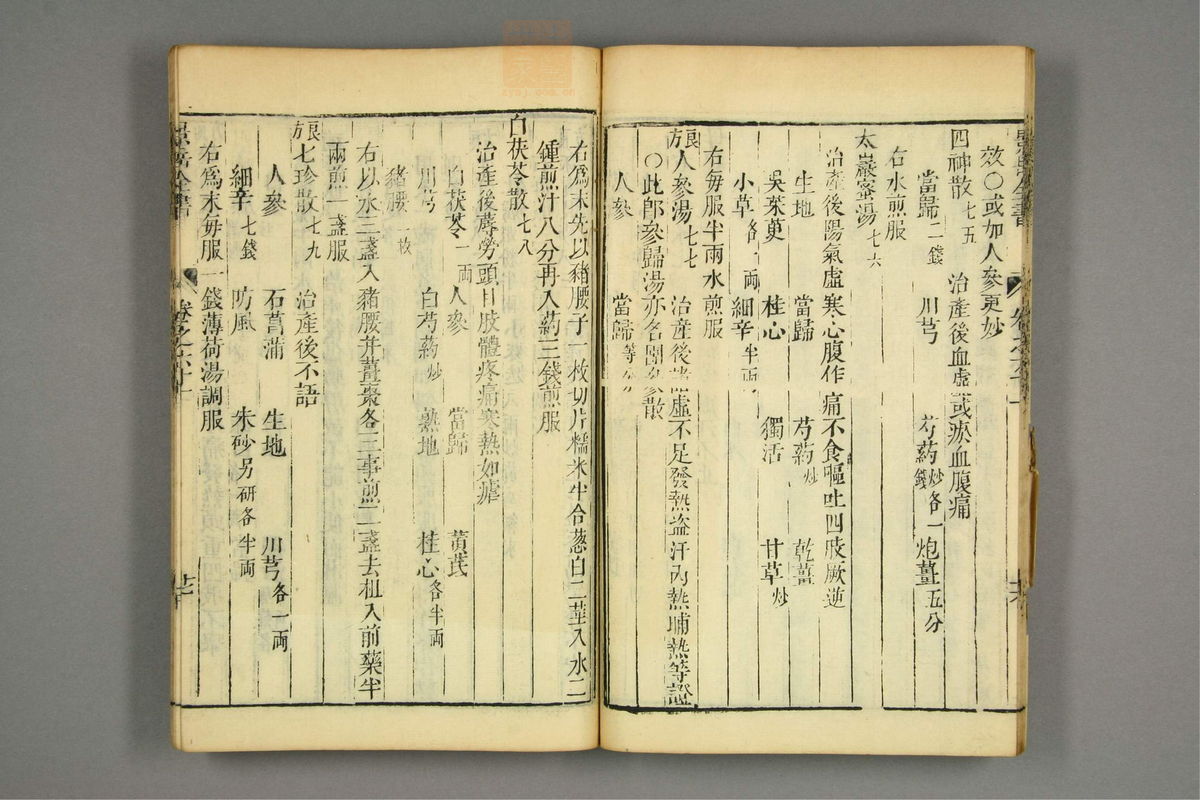 效○或加人參更妙
四神散七五 治產後血虛或瘀血腹痛
當歸二錢 川芎 芍藥炒各一錢 炮薑五分
右水煎服
太巖蜜湯七六
治產後陽氣虛寒心腹作痛不食嘔吐四肢厥逆
生地 當歸 芍藥炒 乾薑
吳茱萸 桂心 獨活 甘草炒
小草各一兩 細辛半兩
右每服半兩水煎服
良方人參湯七七 治產後諸虛不足發熱盜汗內熱晡熱等證
○此卽參歸湯亦名團參散
人參 當歸等分
右爲末先以豬腰子一枚切片糯米半合葱白二莖入水二
鍾煎汁八分再入藥三錢煎服
白茯苓散七八
治產後蓐勞頭目肢體疼痛寒熱如瘧
白茯苓一兩 人參 當歸 黃芪
川芎 白芍藥炒 熟地 桂心各半兩
豬腰一枚
右以水三盞入豬腰并薑棗各三事煎二盞去柤入前藥半
兩煎一盞服
良方七珍散七九 治產後不語
人參 石菖蒲 生地 川芎各一兩
細辛七錢 防風 朱砂另研各半兩
右爲末每服一錢薄荷湯調服
景岳全書 卷之六十一